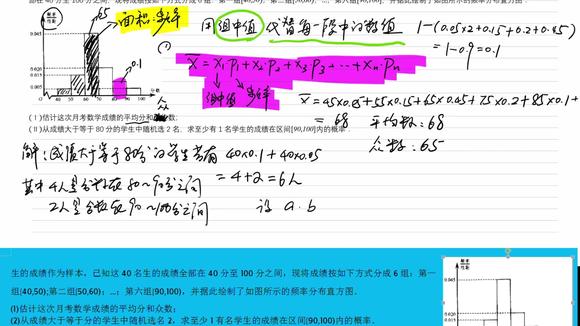 在40分至100分之间,现将成绩按如下方式分成6组:第一组[40,50);第二组[50,60);…;第六组[90,100],并据此绘制了如图所示的频率分布直方图.
频率
组距
65
面积:频率
用组中值代替每一段中的数值
1-(0.05×2+0.15+0.2+0.45)
=1-0.9=0.1
0.045
0.020
0.015
0.005
0.1
40 50 60 70 80 90 100
众
(1)
x̄=x₁p₁+x₂p₂+x₃p₃+…+xₙ·pₙ
组中值 频率
x̄=45×0.05+55×0.15+65×0.45+75×0.2+85×0.1+
=68 平均数:68
众数:65
(Ⅰ)估计这次月考数学成绩的平均分和众数;
(Ⅱ)从成绩大于等于80分的学生中随机选2名,求至少有1名学生的成绩在区间[90,100]内的概率.
解:成绩大于等于80分的学生共有 40×0.1+40×0.05
=4+2=6人
其中4人是分数在80~90分之间
2人是分数在90~100分之间 设 a.b
生的成绩作为样本,已知这40名生的成绩全部在40分至100分之间,现将成绩按如下方式分成6组:第一
组[40,50);第二组[50,60);…;第六组[90,100],并据此绘制了如图所示的频率分布直方图.
(1)估计这次月考数学成绩的平均分和众数;
(2)从成绩大于等于分的学生中随机选名2,求至少有1名学生的成绩在区间[90,100]内的概率.
频率
组距
0.045